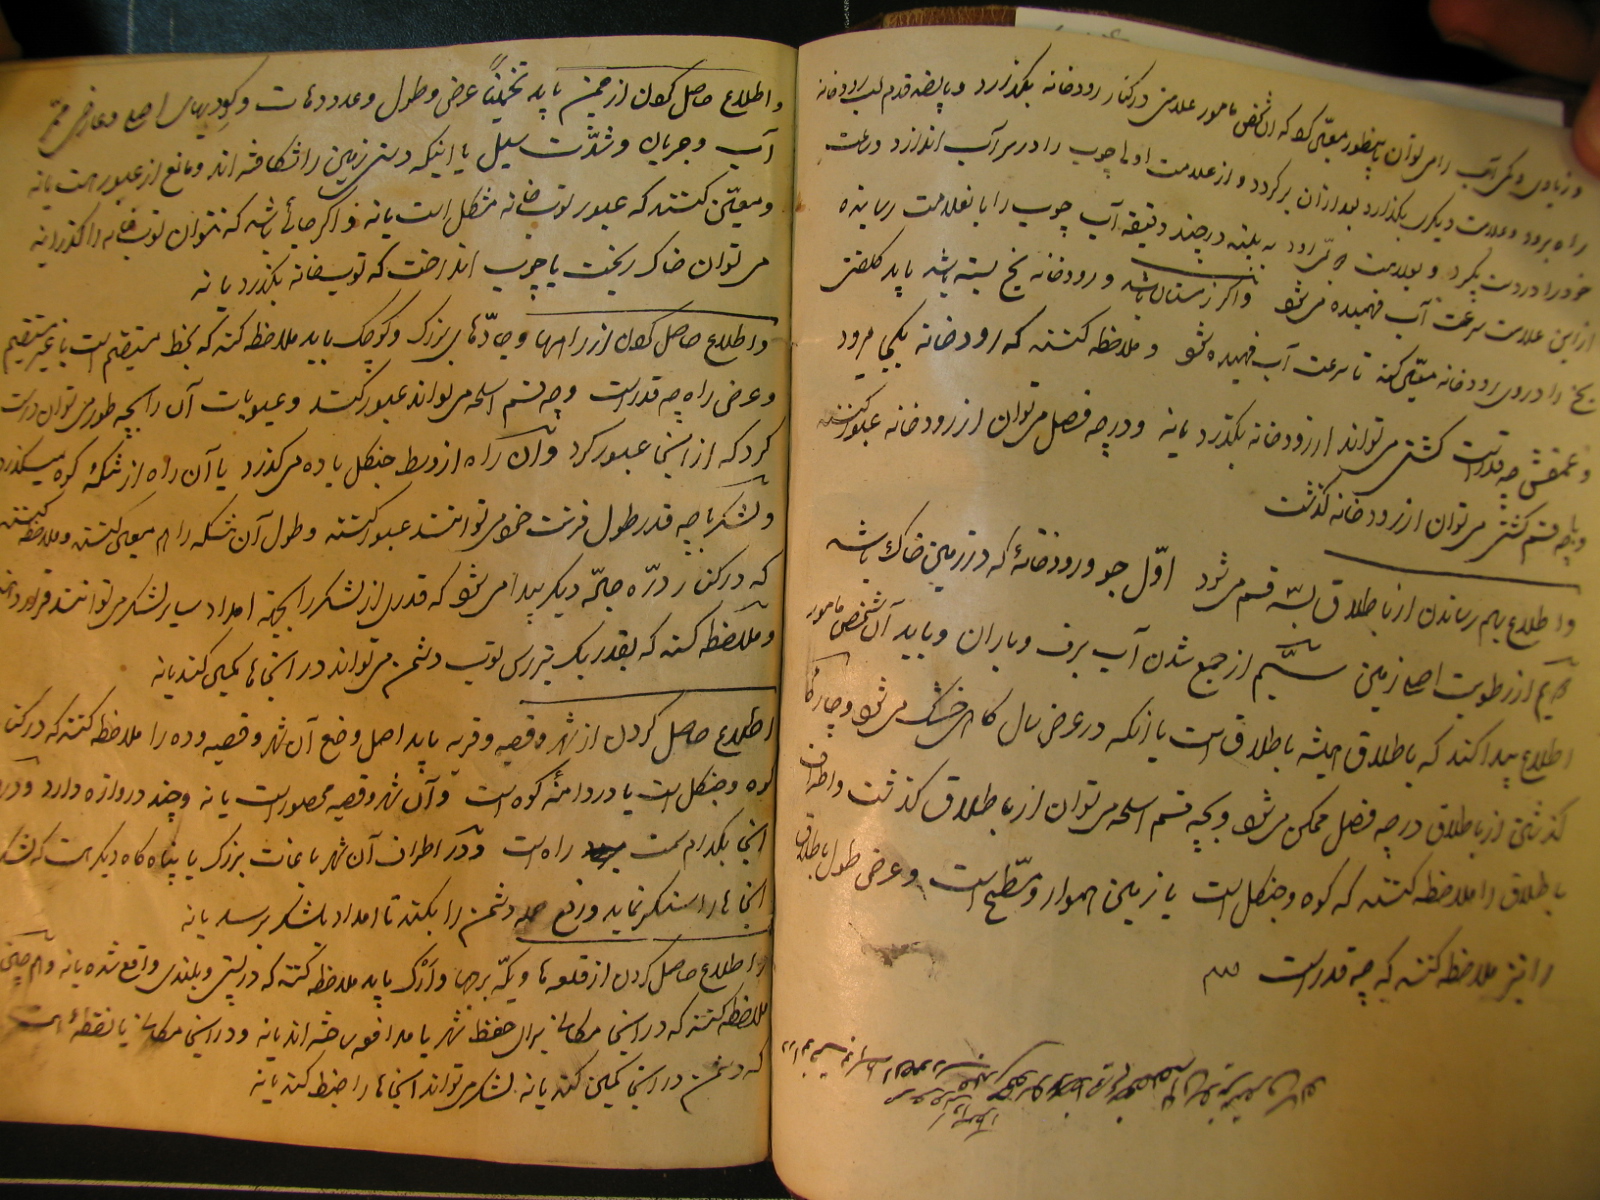 و زیادی و کمی آب را می‌توان باینطور معیّن کرد که آن شخص مامور علامتی در کنار رودخانه بگذارد و پانصد قدم لب رودخانه
راه برود و علامت دیگری بگذارد بعد از آن برگردد و از علامت اولی چوب را در سر آب اندازد و ساعت
خود را در دست بگیرد و بعلامت دیّم رود به بیند در چند دقیقه آب چوب را بانعلامت رسانیده
از این علامت سرعت آب فهمیده می‌شود و اگر زمستان باشد و رودخانه یخ بسته باشد باید کلفتی
یخ را در روی رودخانه معیّن کند تا سرعت آب فهمیده شود و ملاحظه کنند که رودخانه بکجا میرود
و عمقش چه قدر است کشتی می‌تواند از رودخانه بگذرد یا نه و در چه فصل می‌توان از رودخانه عبور کنند
و با چه قسم کشتی می‌توان از رودخانه گذشت
و اطلاع بهم رساندن از باطلاق بسّه قسم می‌شود اوّل جو و رودخانهٔ که در زمین خاک باشد
دیّم از رطوبت اصل زمین سیّم از جمع شدن آب برف و باران و باید آن شخص مامور
اطلاع پیدا کند که باطلاق همیشه باطلاق است یا آنکه در عرض سال گاهی خشک می‌شود و چارگاه
گذشتن از باطلاق در چه فصل ممکن می‌شود و بچه قسم اسلحه می‌توان از باطلاق گذشت و اطراف
باطلاق را ملاحظه کنند که کوه و جنگل است یا زمین هموار و مسطّح است و عرض طول باطلاق
را نیز ملاحظه کنند که چه قدر است
و اطلاع حاصل کردن از چمن باید تخمیناً عرض و طول و عدد دهات و گودیهای اصلی و عارضی
آب و جریان و شدّت سیل یا اینکه دستی زمین را شکافته‌اند و مانع از عبور هست یا نه
و معیّن کنند که عبور توپخانه مشکل است یا نه و اگر جائی باشد که نتوان توپخانه را گذرانید
می‌توان خاک ریخت یا چوب انداخت که توپخانه بگذرد یا نه
و اطلاع حاصل کردن از راهها و جادّهای بزرگ و کوچک باید ملاحظه کند که بخط مستقیم است یا غیر مستقیم
و عرض راه چه قدر است و چه قسم اسلحه می‌تواند عبور کند و عیوبات آن را بچه طور می‌توان درست
کرد که از اینجا عبور کرد و آن راه از وسط جنگل یا ده می‌گذرد یا آن راه از تنگهٔ کوه میگذرد
و لشکر با چه قدر طول فرنت خود می‌توانند عبور کنند و طول آن تنگه را هم معین کنند و ملاحظه کنند
که در کنار درّه جائی دیگر پیدا می‌شود که قدری از لشکر را بجهة امداد سایر لشکر می‌توانند قرار داد
و ملاحظه کند که بقدر یک تیررس توپ دشمن می‌تواند در اینجاها کمین کند یا نه
اطلاع حاصل کردن از شهر و قصبه و قریه باید اصل وضع آن شهر و قصبه و ده را ملاحظه کنند که در کنار
کوه و جنگل است یا در دامنهٔ کوه است و آن شهر و قصبه محصور است یا نه و چند دروازه دارد و در
اینجا بکدام سمت راه است و در اطراف آن شهر باغات بزرگ یا پناه گاه دیگر هست که لشکر
اینجاها را سنگر نماید و رفع دشمن را بکند تا امداد بلشکر برسد یا نه
و اطلاع حاصل کردن از قلعه‌ها و یکّه برجها و ارگ باید ملاحظه کنند که در پستی و بلندی واقع شده یا نه و هم چنین
ملاحظه کنند که در این مکانها برای حفظ شهر یا مدافعه ساخته‌اند یا نه و در این مکانها یا نقطهٔ هست
که دشمن در اینجا کمین کند یا نه لشکر می‌تواند اینجاها را ضبط کند یا نه